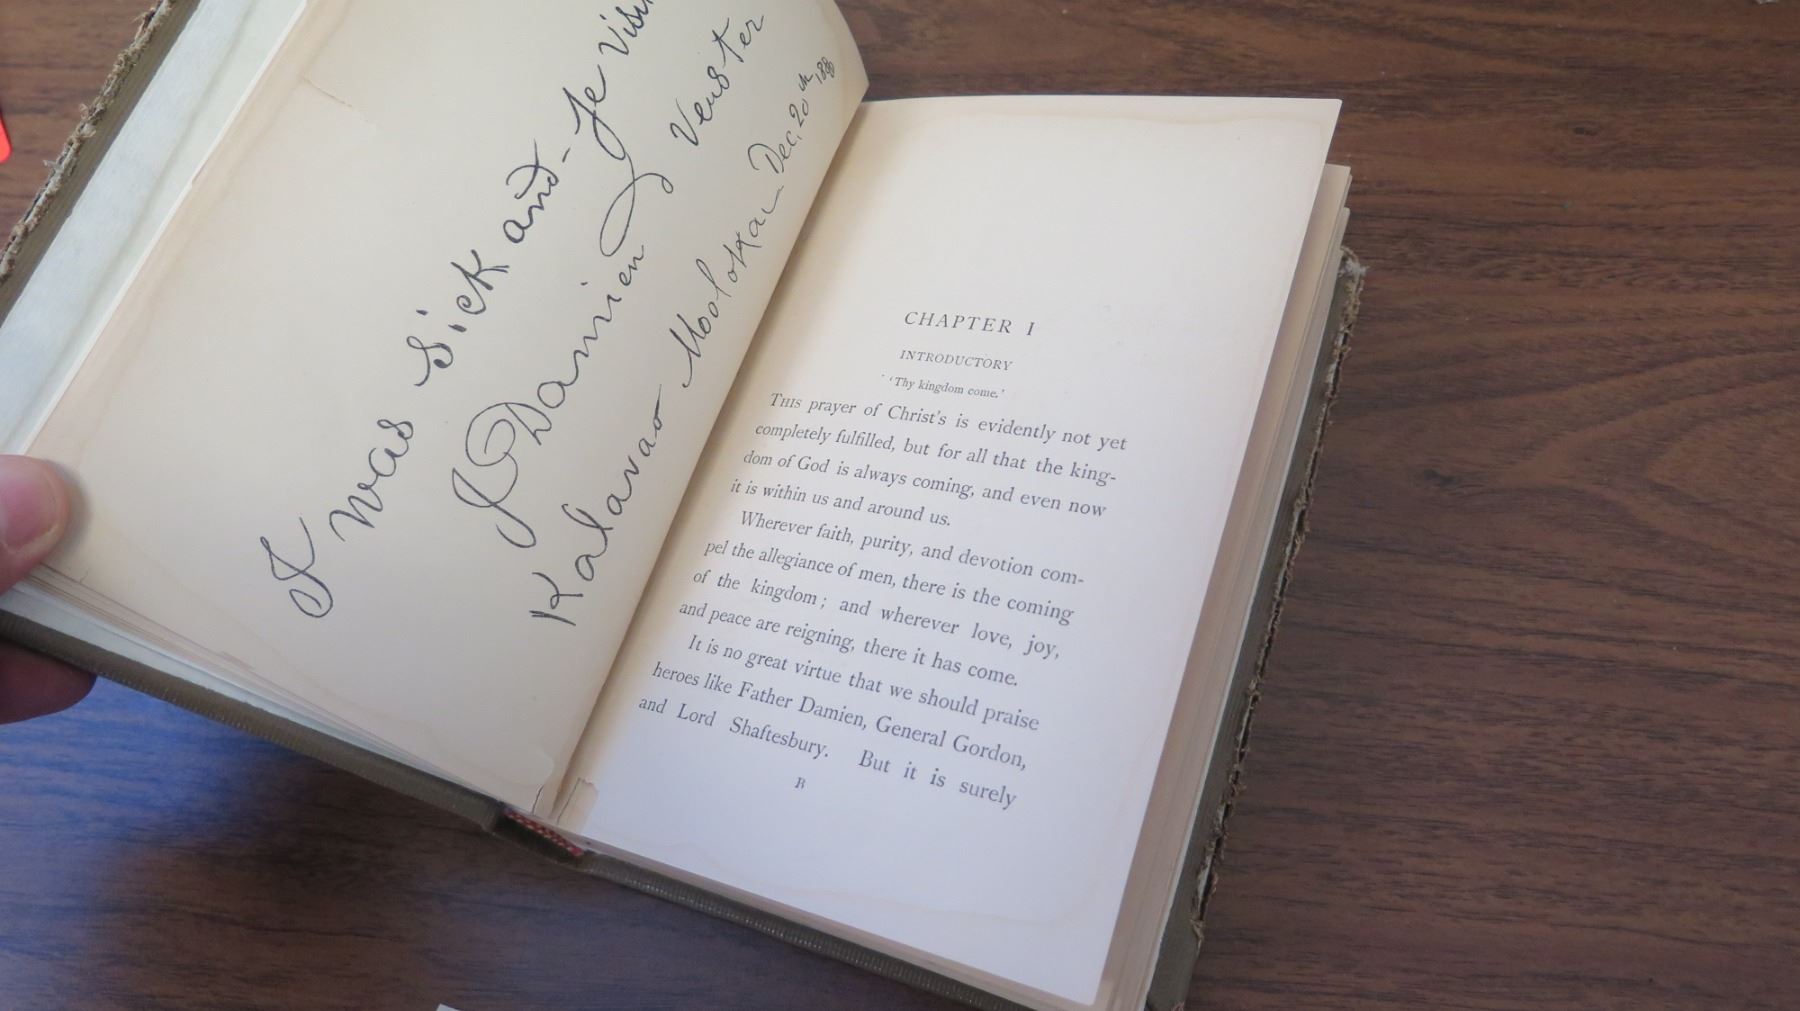 I was sick and - Ye
J Damien Veuster
Kalavao Moolokai Dec. 20th
CHAPTER I
INTRODUCTORY
'Thy kingdom come.'
THIS prayer of Christ's is evidently not yet
completely fulfilled, but for all that the king-
dom of God is always coming, and even now
it is within us and around us.
Wherever faith, purity, and devotion com-
pel the allegiance of men, there is the coming
of the kingdom; and wherever love, joy,
and peace are reigning, there it has come.
It is no great virtue that we should praise
heroes like Father Damien, General Gordon,
and Lord Shaftesbury. But it is surely
B